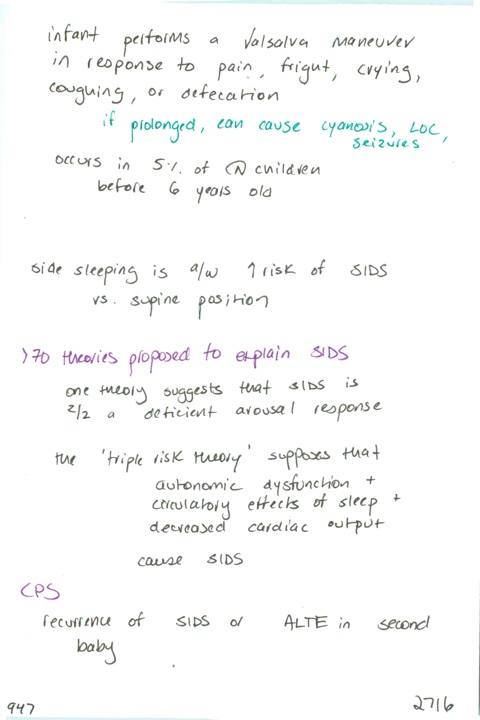 infant performs a Valsalva maneuver
in response to pain, fright, crying,
coughing, or defecation
if prolonged, can cause cyanosis, LOC,
seizures
occurs in 5% of Ⓝ children
before 6 years old
side sleeping is a/w ↑ risk of SIDS
vs. supine position
>70 theories proposed to explain SIDS
one theory suggests that SIDS is
2/2 a deficient arousal response
the 'triple risk theory' supposes that
autonomic dysfunction +
circulatory effects of sleep +
decreased cardiac output
cause SIDS
CPS
recurrence of SIDS or ALTE in second
baby
947
2716